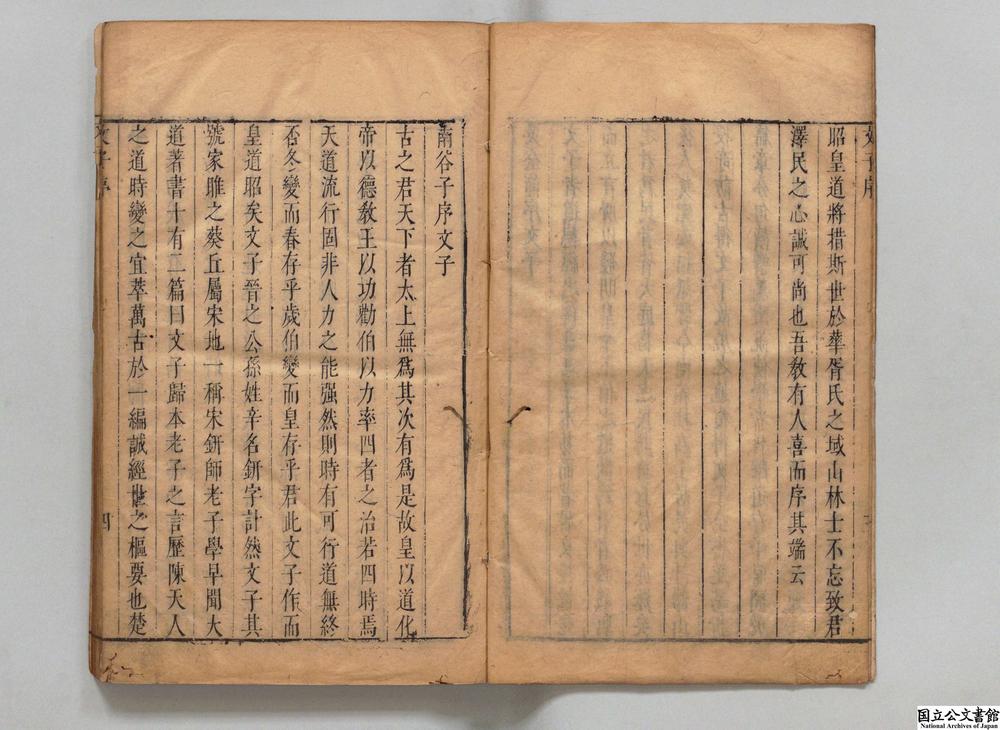 文子序
昭皇道將措斯世於華胥氏之域山林士不忘致君
澤民之心誠可尚也吾敎有人喜而序其端云
南谷子序文子
古之君天下者太上無爲其次有爲是故皇以道化
帝以德敎王以功勸伯以力率四者之治若四時焉
天道流行固非人力之能强然則時有可行道無終
否冬變而春存乎歲伯變而皇存乎君此文子作而
皇道昭矣文子晉之公孫姓辛名鈃字計然文子其
號家睢之葵丘屬宋地一稱宋鈃師老子學早聞大
道著書十有二篇曰文子歸本老子之言歷陳天人
之道時變之宜萃萬古於一編誠經世之樞要也楚
文子序
四
国立公文書館
National Archives of Japan